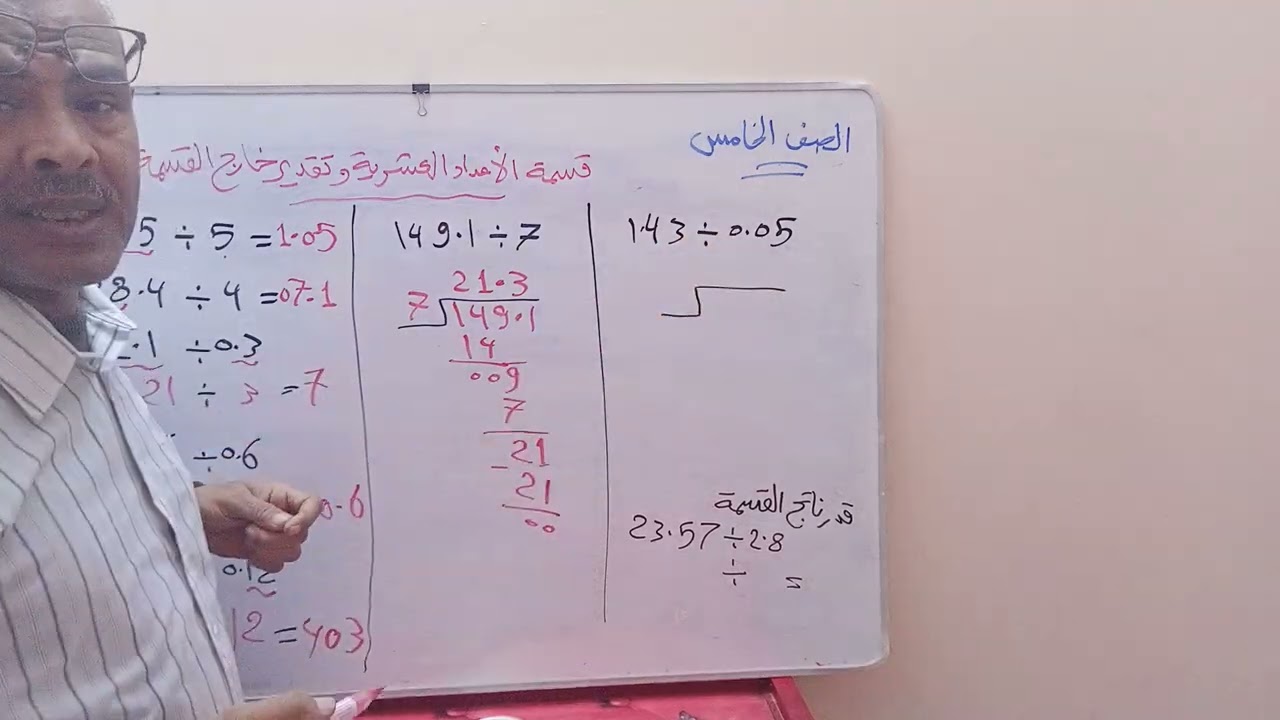 الصف الخامس
قسمة الأعداد العشرية وتقدير خارج القسمة
5 ÷ 5 = 1.05
8.4 ÷ 4 = 07.1
.1 ÷ 0.3
21 ÷ 3 = 7
÷ 0.6
0.6
0.12
12 = 403
149.1 ÷ 7
21.3
7 149.1
14
009
7
- 21
21
00
1.43 ÷ 0.05
قدر ناتج القسمة
23.57 ÷ 2.8
÷ =